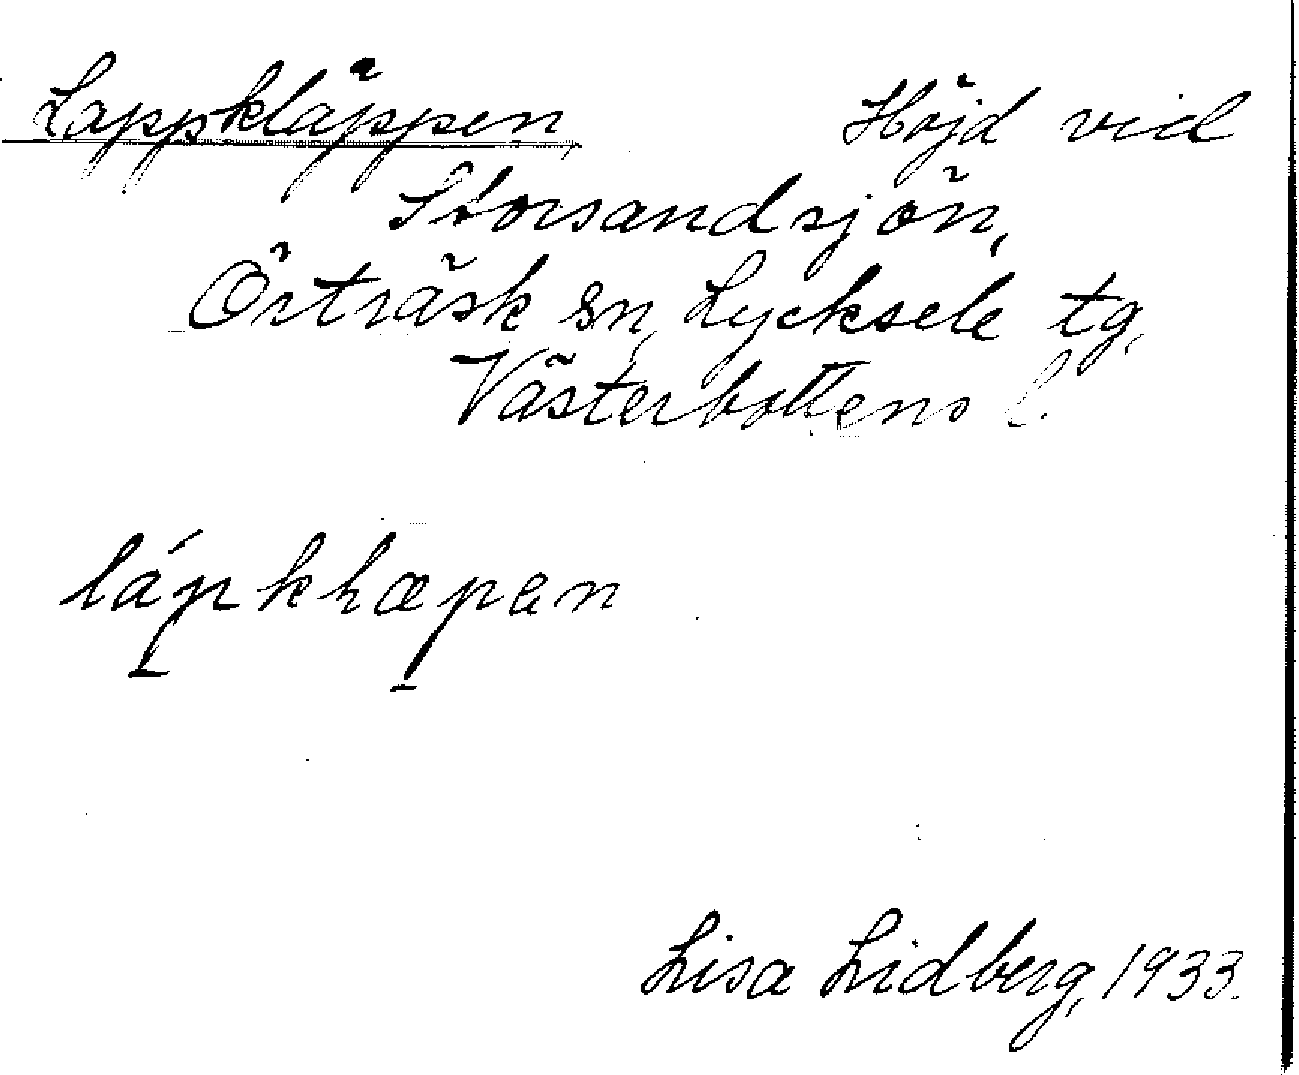 Lappkläppen, Höjd vid
Storsandsjön,
Örträsk sn, Lycksele tg,
Västerbottens l.
lápkhæpen
Lisa Lidberg, 1933.